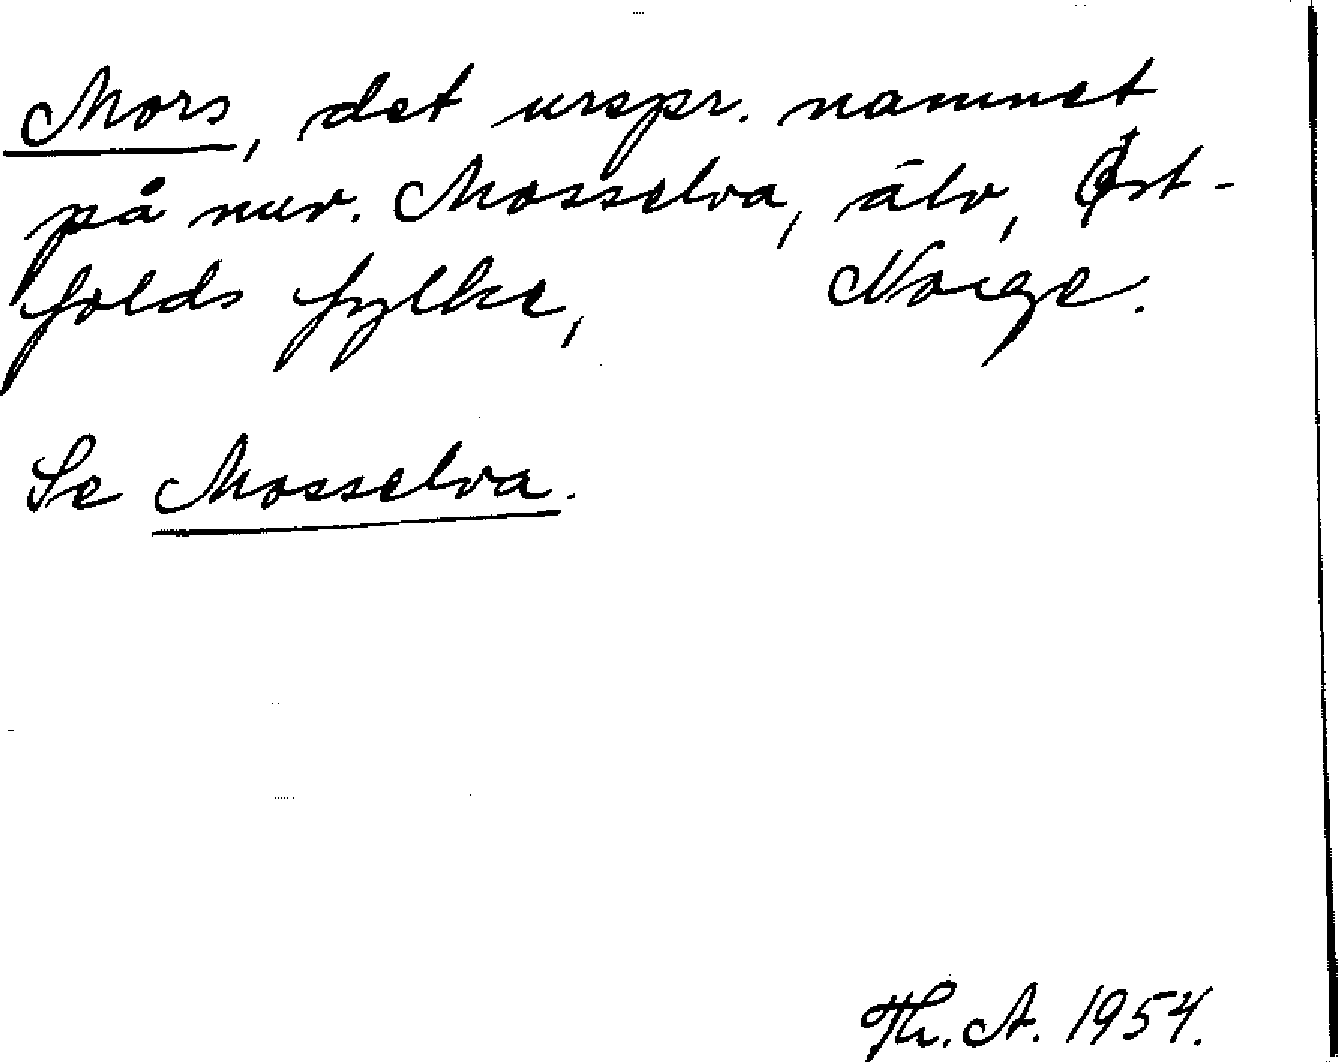 Mors, det urspr. namnet
på nuv. Mosselva, älv, Øst-
folds fylke, Norge.
Se Mosselva.
Th. A. 1954.